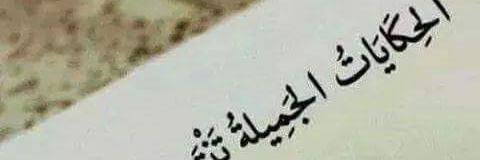 الحِكَايَاتُ الجَمِيلةُ